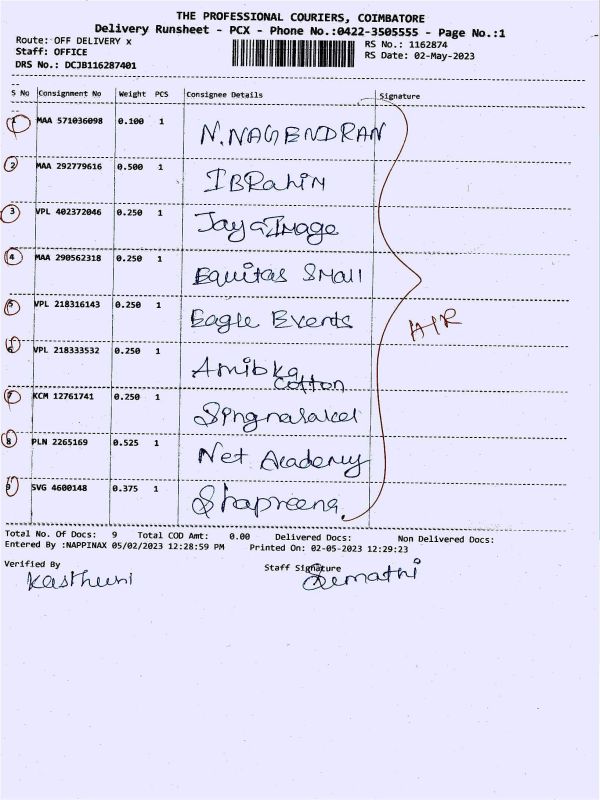 THE PROFESSIONAL COURIERS, COIMBATORE
Delivery Runsheet - PCX - Phone No.:0422-3505555 - Page No.:1
Route: OFF DELIVERY x RS No.: 1162874
Staff: OFFICE RS Date: 02-May-2023
DRS No.: DCJB116287401
S No Consignment No Weight PCS Consignee Details Signature
1 MAA 571036098 0.100 1 N.NAGENDRAN
2 MAA 292779616 0.500 1 IBRahiN
3 VPL 402372046 0.250 1 Jaya Image
4 MAA 290562318 0.250 1 Equitas Small
5 VPL 218316143 0.250 1 Eagle Events
AIR
6 VPL 218333532 0.250 1 Amibka
Cotton
7 KCM 12761741 0.250 1
8 PLN 2265169 0.525 1 Net Academy
9 SVG 4600148 0.375 1 Shapreena.
Total No. Of Docs: 9 Total COD Amt: 0.00 Delivered Docs: Non Delivered Docs:
Entered By :NAPPINAX 05/02/2023 12:28:59 PM Printed On: 02-05-2023 12:29:23
Verified By Staff Signature
Kasthuri Sumathi